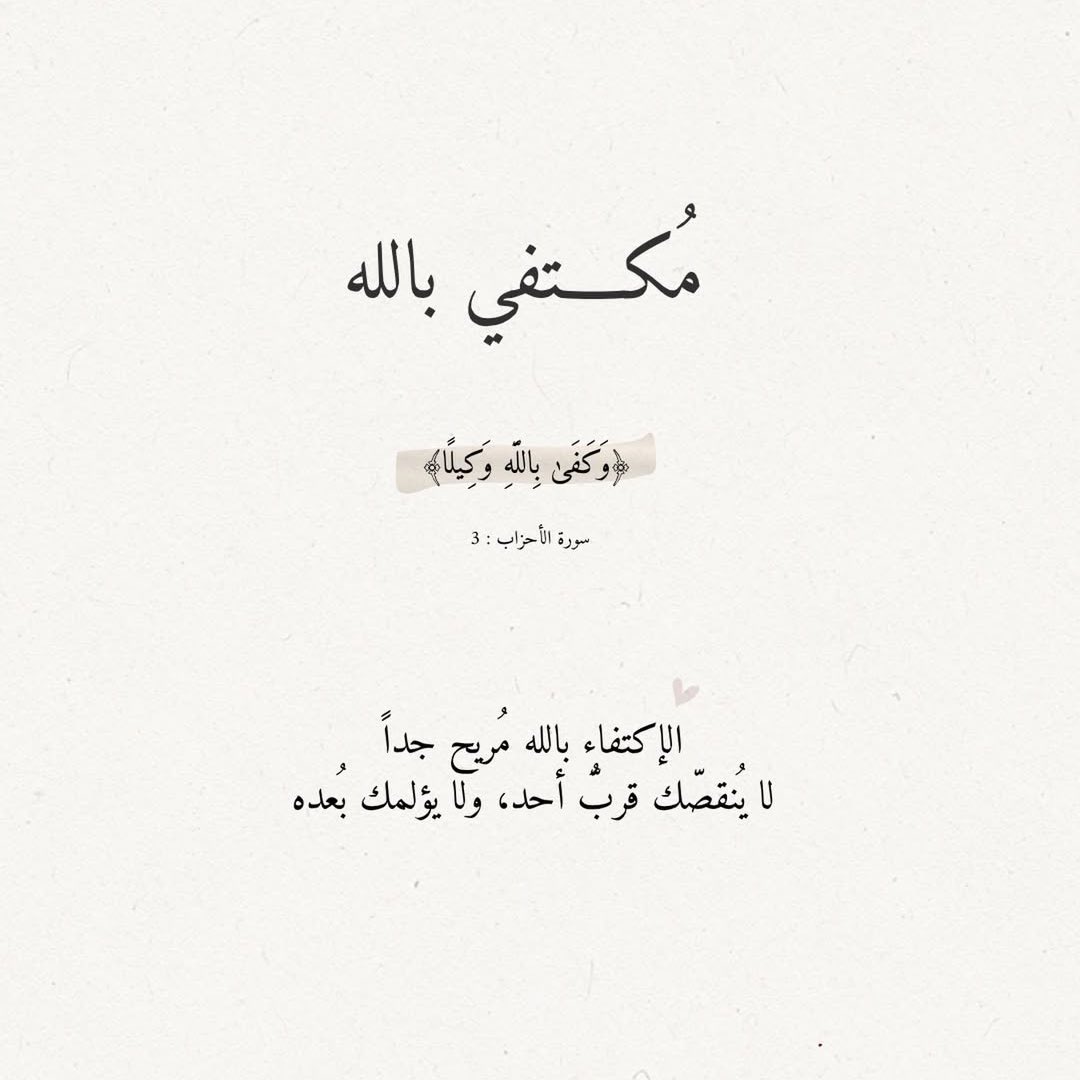 مُكـــتفي بالله
﴿وَكَفَىٰ بِاللَّهِ وَكِيلًا﴾
سورة الأحزاب : 3
الإكتفاء بالله مُريح جداً
لا يُنقصّك قربٌ أحد، ولا يؤلمك بُعده